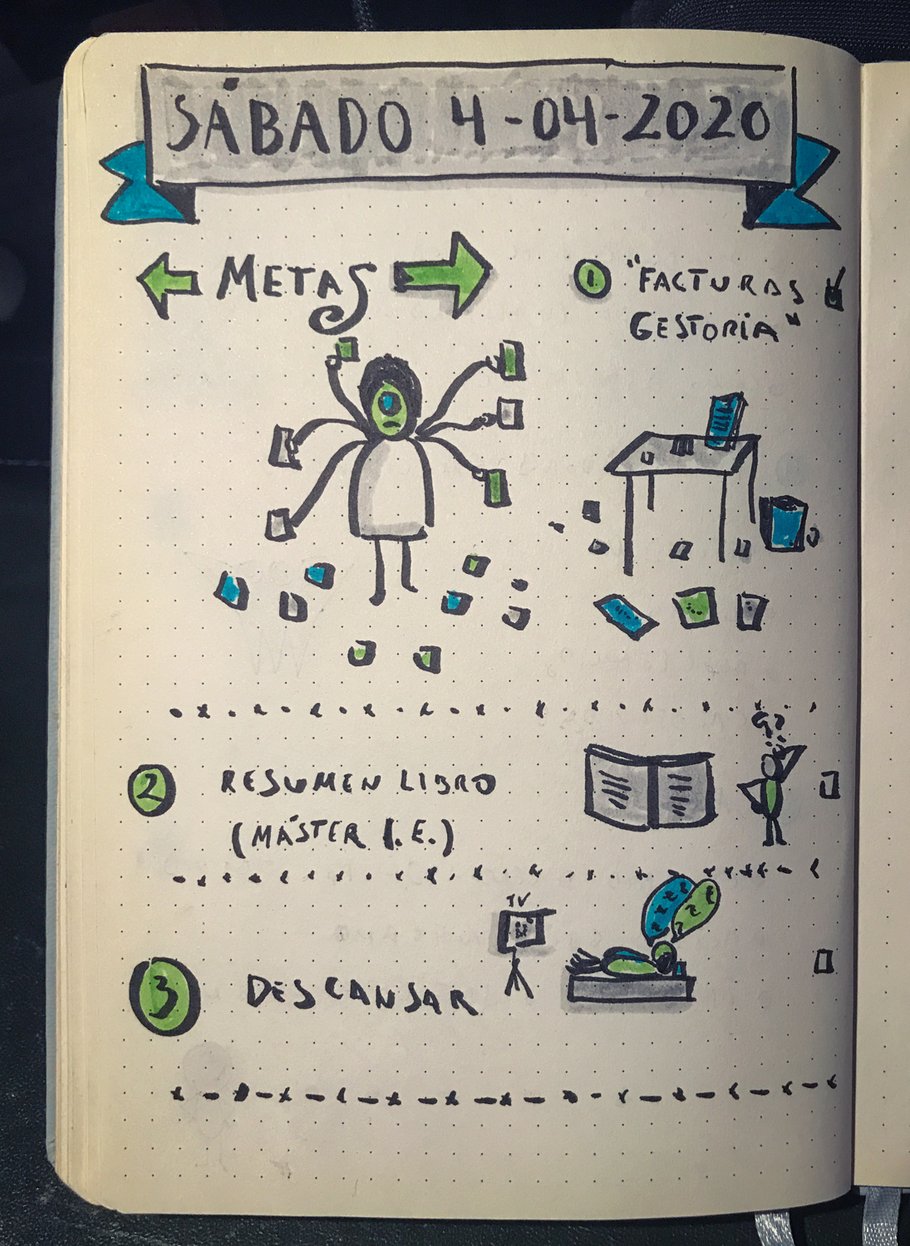 SÁBADO 4-04-2020
METAS
1 "FACTURAS
GESTORIA"
2 RESUMEN LIBRO
(MÁSTER I.E.)
TV
3 DESCANSAR